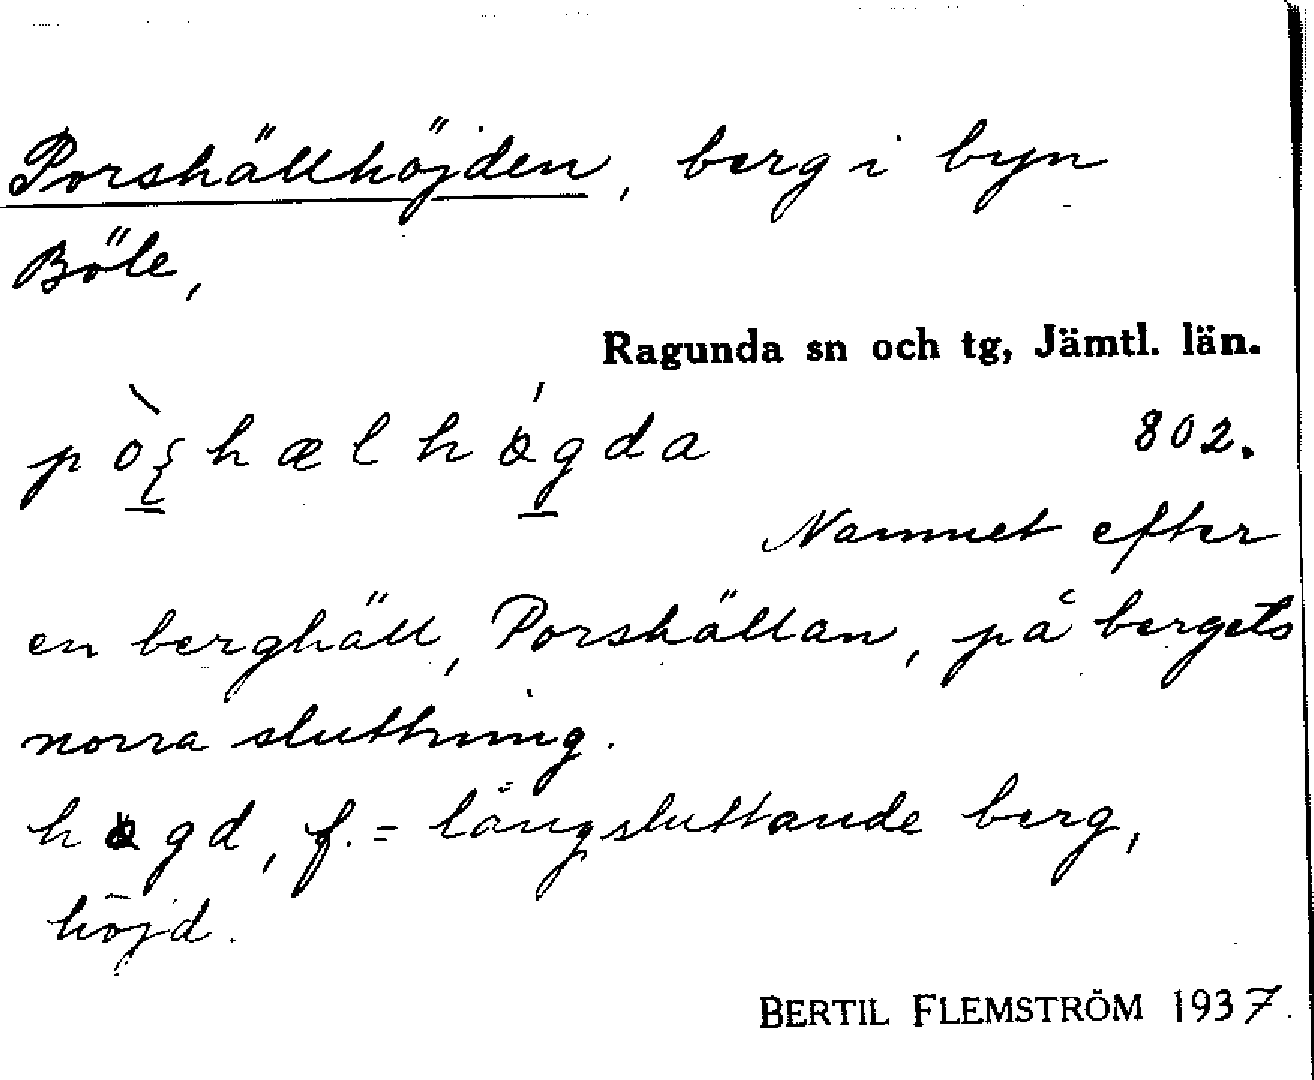 Porshällhöjden, berg i byn
Böle,
Ragunda sn och tg, Jämtl. län.
802.
Namnet efter
en berghäll, Porshällan, på bergets
norra sluttning.
f. = långsluttande berg,
höjd.
BERTIL FLEMSTRÖM 1937.